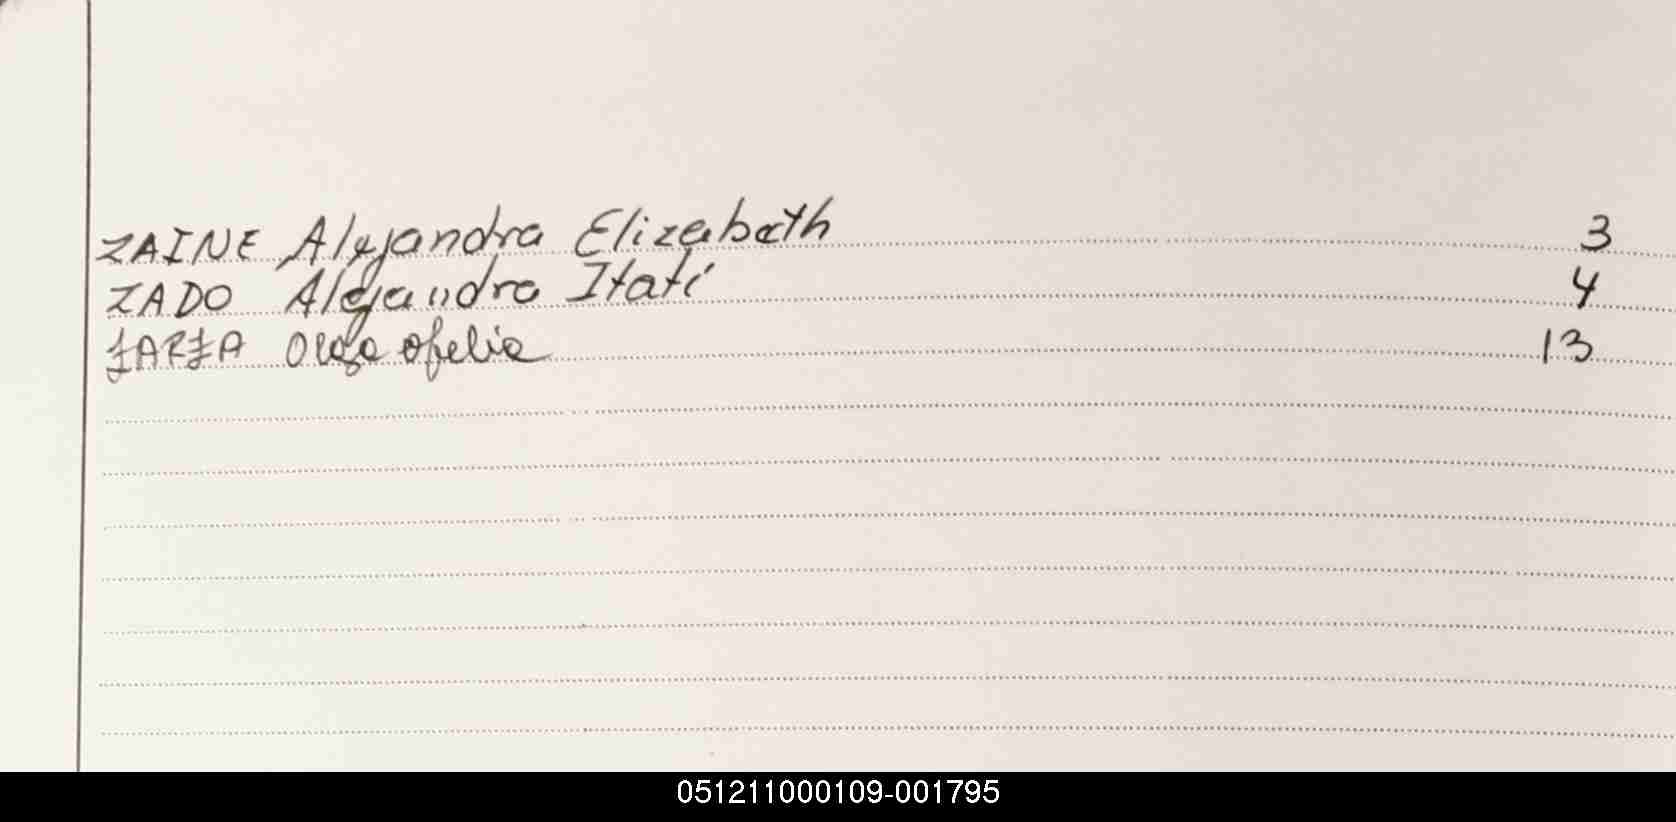 ZAINE Alejandra Elizabeth 3
ZADO Alejandra Itatí 4
ZARZA Olga ofelia 13
051211000109-001795